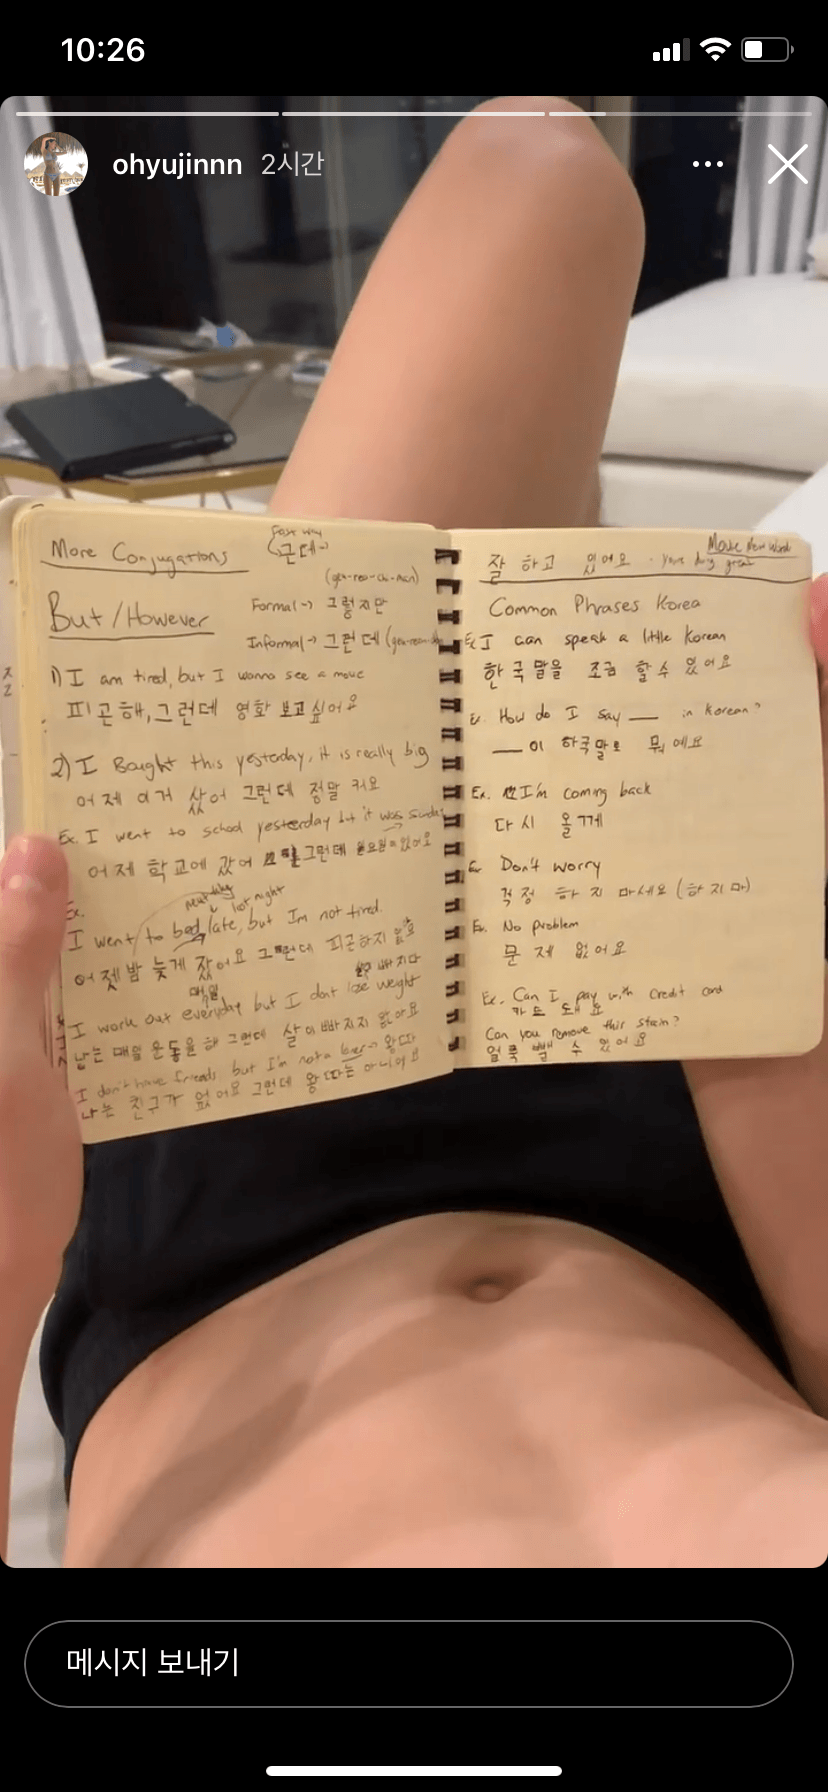 10:26
ohyujinnn 2시간
More Conjugations
Fast way
근데
But/However
Formal → 그렇지만
Informal → 그런데
1) I am tired, but I wanna see a movie
피곤해, 그런데 영화 보고 싶어요
2) I Bought this yesterday, it is really big
어제 이거 샀어 그런데 정말 커요
Ex. I went to school yesterday but it was sunday
어제 학교에 갔어 그런데
Ex.
last night
I went to bed late, but Im not tired.
어젯밤 늦게 잤어요 그런데 피곤하지
매일
빠지다
I work out everyday but I dont lose weight
매일 운동을 해 그런데 살이 빠지지
I don't have friends, but I'm not a loser → 왕따
나는 친구가 없어요 그런데 왕따는 아니에요
잘 하고 있어요 · your doing great
More New Words
Common Phrases Korea
Ex I can speak a little Korean
한국말을 조금 할 수 있어요
Ex. How do I say ___ in Korean?
___이 한국말로 뭐예요
Ex. I'm coming back
다시 올게
Ex Don't worry
걱정 하지 마세요 (하지마)
Ex. No problem
문제 없어요
Ex. Can I pay with credit card
카드 돼요
Can you remove this stain?
얼룩 뺄 수 있어요
메시지 보내기